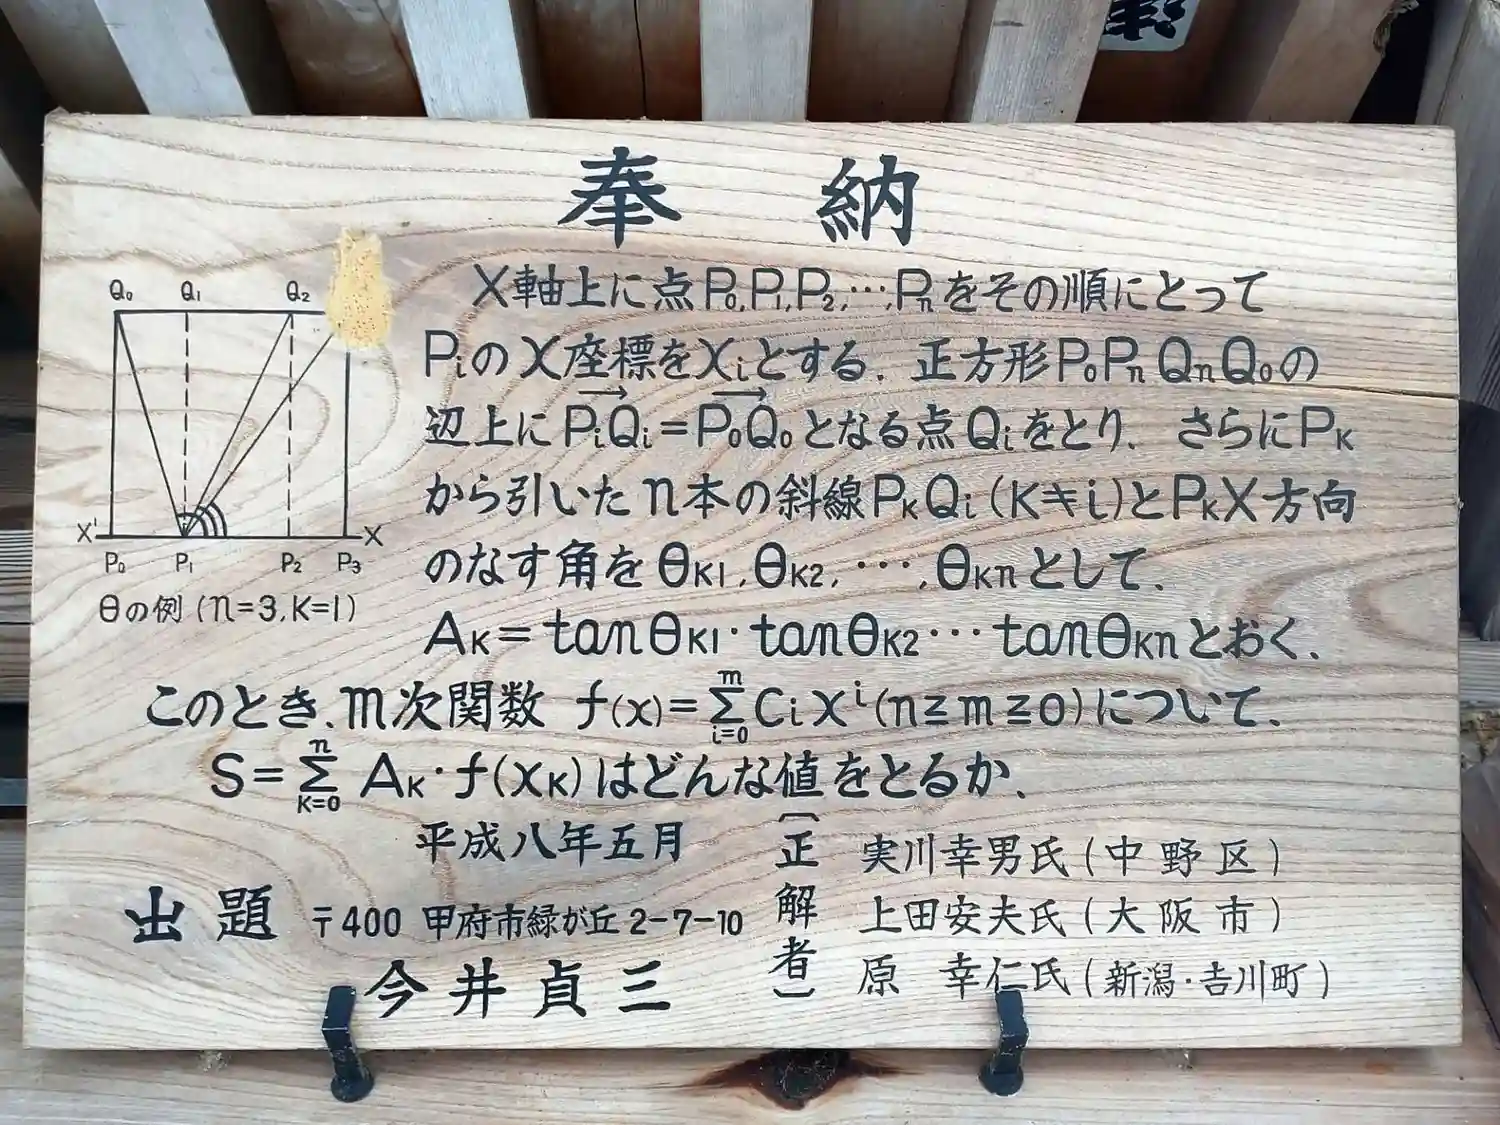 奉納
X軸上に点P₀,P₁,P₂,…,Pₙをその順にとって
PᵢのX座標をxᵢとする. 正方形P₀PₙQₙQ₀の
辺上に→PᵢQᵢ=→P₀Q₀となる点Qᵢをとり. さらにPK
から引いたn本の斜線PKQᵢ(K≠i)とPKX方向
のなす角をθK1,θK2,…,θKnとして.
AK=tanθK1·tanθK2…tanθKnとおく.
このとき.m次関数 f(x)=∑[i=0→m]Cᵢxⁱ(n≧m≧0)について.
S=∑[K=0→n] AK·f(xK)はどんな値をとるか.
Q₀ Q₁ Q₂
X' X
P₀ P₁ P₂ P₃
θの例(n=3,K=1)
平成八年五月
出題 〒400 甲府市緑が丘2-7-10
今井貞三
〔正解者〕
実川幸男氏(中野区)
上田安夫氏(大阪市)
原 幸仁氏(新潟·吉川町)